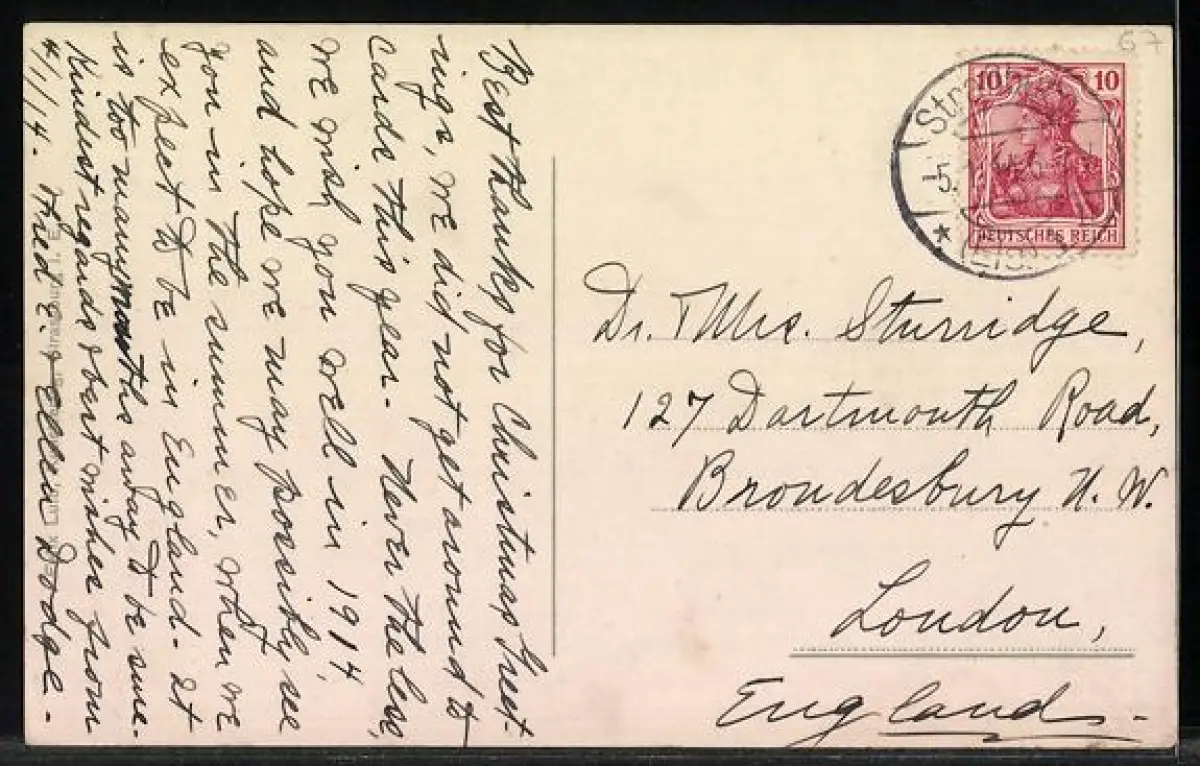 Best thanks for Christmas Greet-
ings, we did not get around to
Cards this year. Never the less,
we wish you well in 1914,
and hope we may possibly see
you in the summer, when we
expect to be in England. It
is too many months away to be sure.
Kindest regards & best wishes from
4/1/14. Fred E. & Ellen Dodge -
67
10 10
DEUTSCHES REICH
Dr. & Mrs. Sturridge,
127 Dartmouth Road,
Brondesbury N. W.
London,
England -